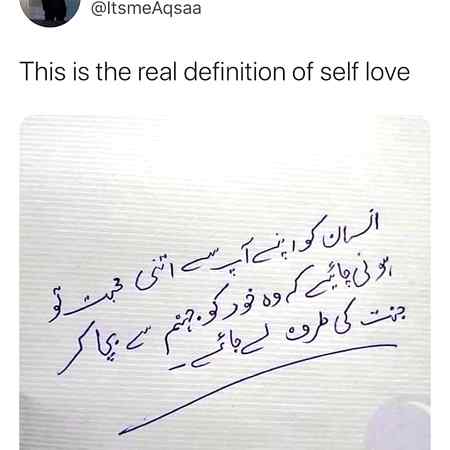 @ItsmeAqsaa
This is the real definition of self love
انسان کو اپنے آپ سے اتنی محبت تو
ہونی چاہیئے کہ وہ خود کو جہنم سے بچا کر
جنت کی طرف لے جائے۔